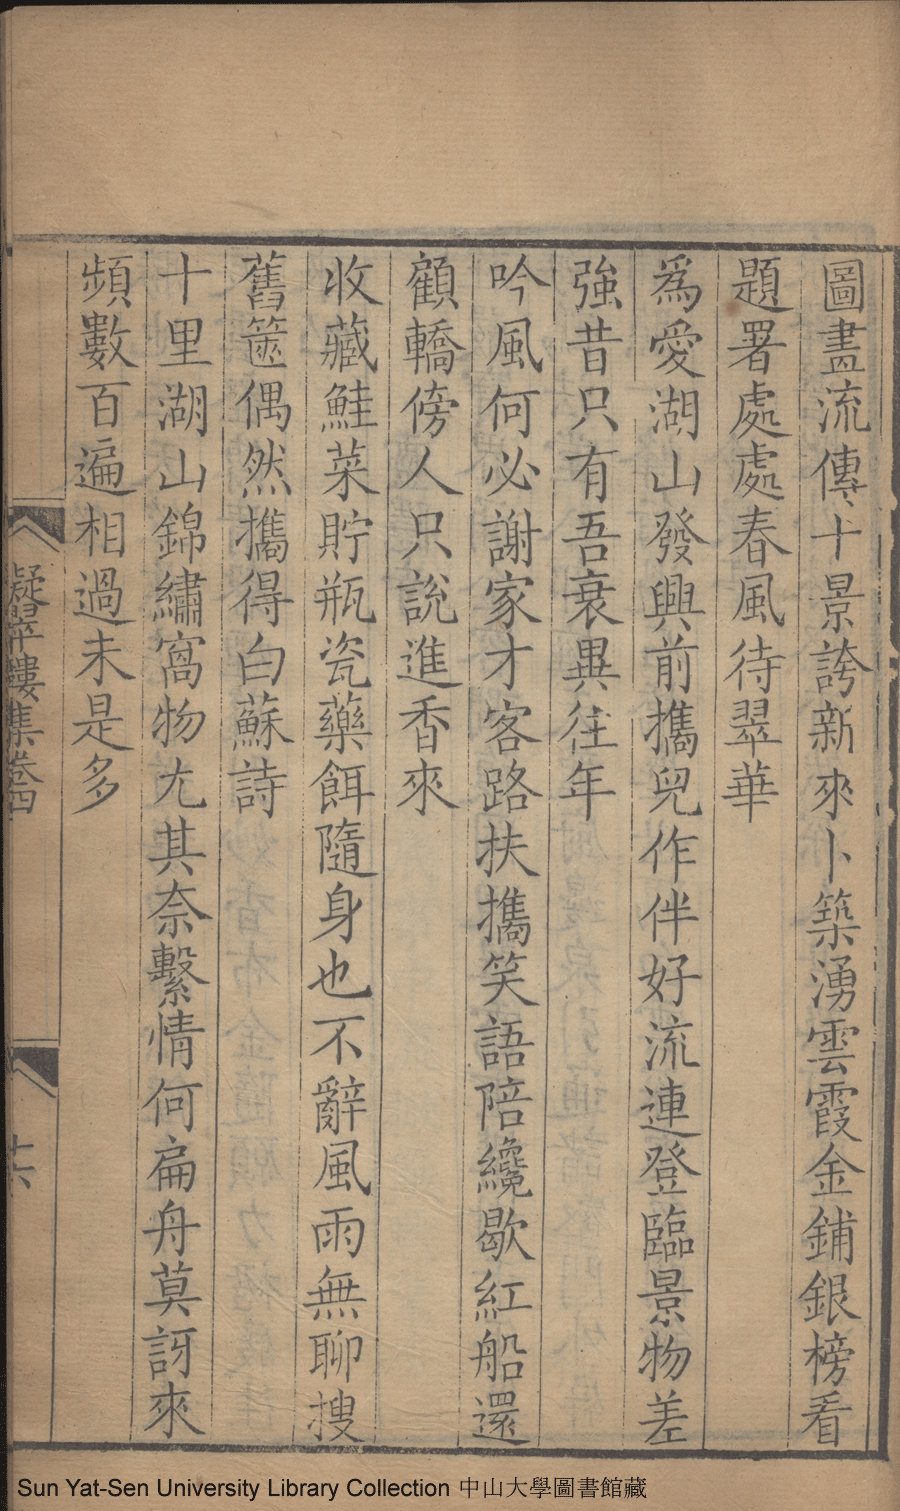 圖畫流傳十景誇新來卜築湧雲霞金鋪銀榜看
題署處處春風待翠華
為愛湖山發興前攜兒作伴好流連登臨景物差
強昔只有吾衰異往年
吟風何必謝家才客路扶攜笑語陪纔歇紅船還
顧轎傍人只說進香來
收藏鮭菜貯瓶瓷藥餌隨身也不辭風雨無聊搜
舊篋偶然攜得白蘇詩
十里湖山錦繡窩物尤其奈繫情何扁舟莫訝來
頻數百遍相過未是多
凝翠樓集卷四
十六
Sun Yat-Sen University Library Collection 中山大學圖書館藏